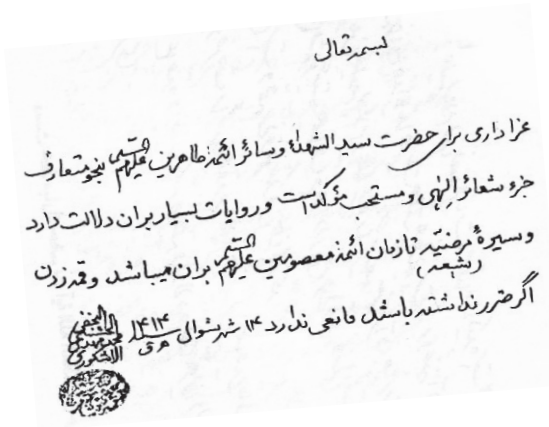 بسمه تعالی
عزاداری برای حضرت سید الشهداء و سائر ائمه طاهرین علیهم السلام بنحو متعارف
جزء شعائر الهی و مستحب مؤکد است و روایات بسیار بران دلالت دارد
و سیرۀ مرضیّه تا زمان ائمه معصومین علیهم السلام بران میباشد و قمه زدن
(شیعه)
اگر ضرر نداشته باشد مانعی ندارد ۱۴ شهر شوال ۱۴۱۴